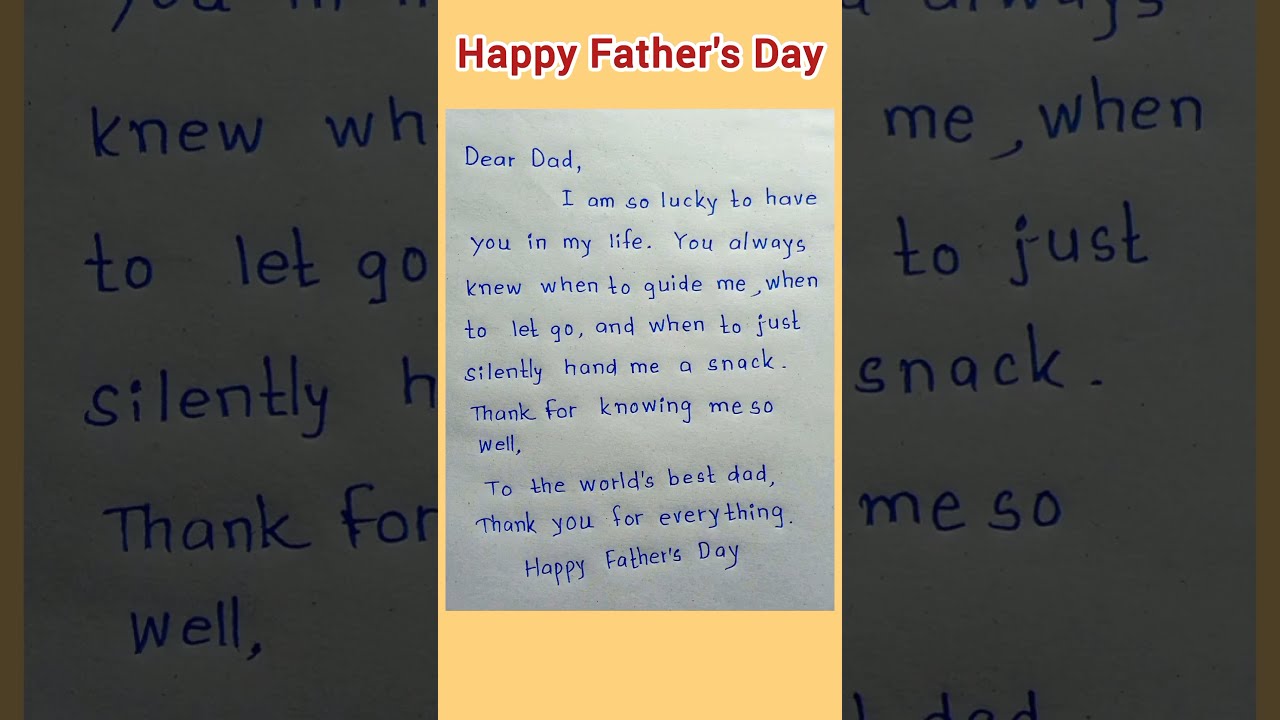 Happy Father's Day
Dear Dad,
I am so lucky to have
you in my life. You always
knew when to guide me, when
to let go, and when to just
silently hand me a snack.
Thank for knowing me so
well,
To the world's best dad,
Thank you for everything.
Happy Father's Day